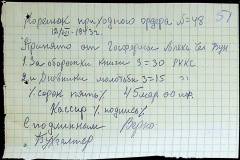 Корешок приходного ордера №48
51
12/VIII-1943г.
Принято от
1. За оборотки книги 3=30 РККС
2. и Дневники молотьбы 3=15 "
/сорок пять/ 45 мар 00 пф.
Кассир /подпись/
С подлинным Верно
Бухгалтер